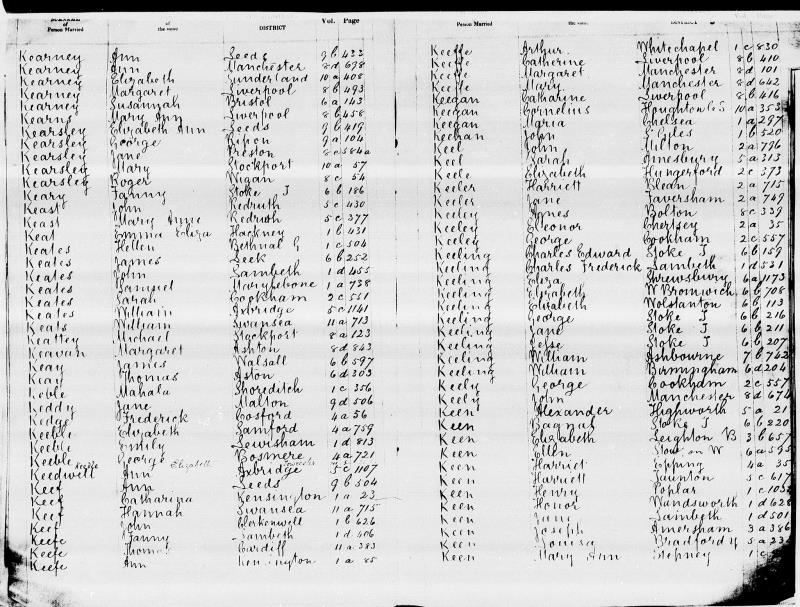 Person Married of the same DISTRICT Vol. Page
Kearney Ann Leeds 9 b 433
Kearney Ann Manchester 8 d 698
Kearney Elizabeth Sunderland 10 a 408
Kearney Margaret Liverpool 8 b 493
Kearney Susannah Bristol 6 a 143
Kearns Mary Ann Liverpool 8 b 458
Kearsley Elizabeth Ann Leeds 9 b 419
Kearsley George Ripon 9 a 104
Kearsley Jane Preston 8 e 584a
Kearsley Mary Stockport 10 a 57
Kearsley Roger Wigan 8 c 54
Keary Fanny Stoke T 6 b 186
Keast John Redruth 5 c 430
Keast Mary Annie Redruth 5 c 377
Keat Emma Eliza Hackney 1 b 431
Keates Hellen Bethnal G 1 c 504
Keates James Leek 6 b 252
Keates John Lambeth 1 d 455
Keates Samuel Marylebone 1 a 738
Keates Sarah Cookham 2 c 551
Keates William Axbridge 5 c 1141
Keats William Swansea 11 a 713
Keattey Michael Stockport 8 a 123
Keavan Margaret Ashton 8 d 843
Keay James Walsall 6 b 597
Keay Thomas Aston 6 d 303
Keble Mahala Shoreditch 1 c 356
Keddy Jane Malton 9 d 506
Kedge Frederick Cosford 4 a 56
Keeble Elizabeth Samford 4 a 759
Keeble Emily Lewisham 1 d 813
Keeble George Bosmere 4 a 721
Keedwell Keeble Ann Elizabeth Axbridge 5 c 1107
Keef Ann Leeds 9 b 504
Keef Catharina Kensington 1 a 23
Keef Hannah Swansea 11 a 715
Keef John Clerkenwell 1 b 626
Keefe Fanny Lambeth 1 d 406
Keefe Thomas Cardiff 11 a 383
Keefe Ann Kensington 1 a 85
Person Married the same DISTRICT
Keeffe Arthur. Whitechapel 1 c 830
Keeffe Catherine Liverpool 8 b 410
Keeffe Margaret Manchester 8 d 101
Keeffe Mary. Manchester 8 d 643
Keegan Catharine Liverpool 8 b 416
Keegan Cornelius Houghton le S 10 a 353
Keegan Maria Chelsea 1 a 297
Keehan John S Giles 1 b 520
Keel John Milton 2 a 796
Keel Sarah Amesbury 5 a 313
Keele Elizabeth Hungerford 2 c 373
Keeler Harriett Blean 2 a 715
Keeler Jane Faversham 2 a 749
Keeley Agnes Bolton 8 c 339
Keeley Eleonor Chertsey 2 a 35
Keeley George Cookham 2 c 557
Keeling Charles Edward Stoke T 6 b 159
Keeling Charles Frederick Lambeth 1 d 531
Keeling Eliza Shrewsbury 6 a 1173
Keeling Elizabeth W Bromwich 6 b 708
Keeling Elizabeth Wolstanton 6 b 113
Keeling George Stoke T 6 b 216
Keeling Jane Stoke T 6 b 211
Keeling Jesse Stoke T 6 b 207
Keeling William Ashbourne 7 b 742
Keeling William Birmingham 6 d 204
Keely George Cookham 2 c 557
Keely John Manchester 8 d 674
Keen Alexander Highworth 5 a 21
Keen Bagnal Stoke T 6 b 220
Keen Elizabeth Leighton B 3 b 657
Keen Ellen Stow on W 6 a 595
Keen Harriet Epping 4 a 35
Keen Harriett Taunton 5 c 617
Keen Henry Poplar 1 c
Keen Honor Wandsworth 1 d 628
Keen Jane Lambeth 1 d 501
Keen Joseph Amersham 3 a 386
Keen Louisa Bradford 5 a
Keen Mary Ann Stepney 1 c